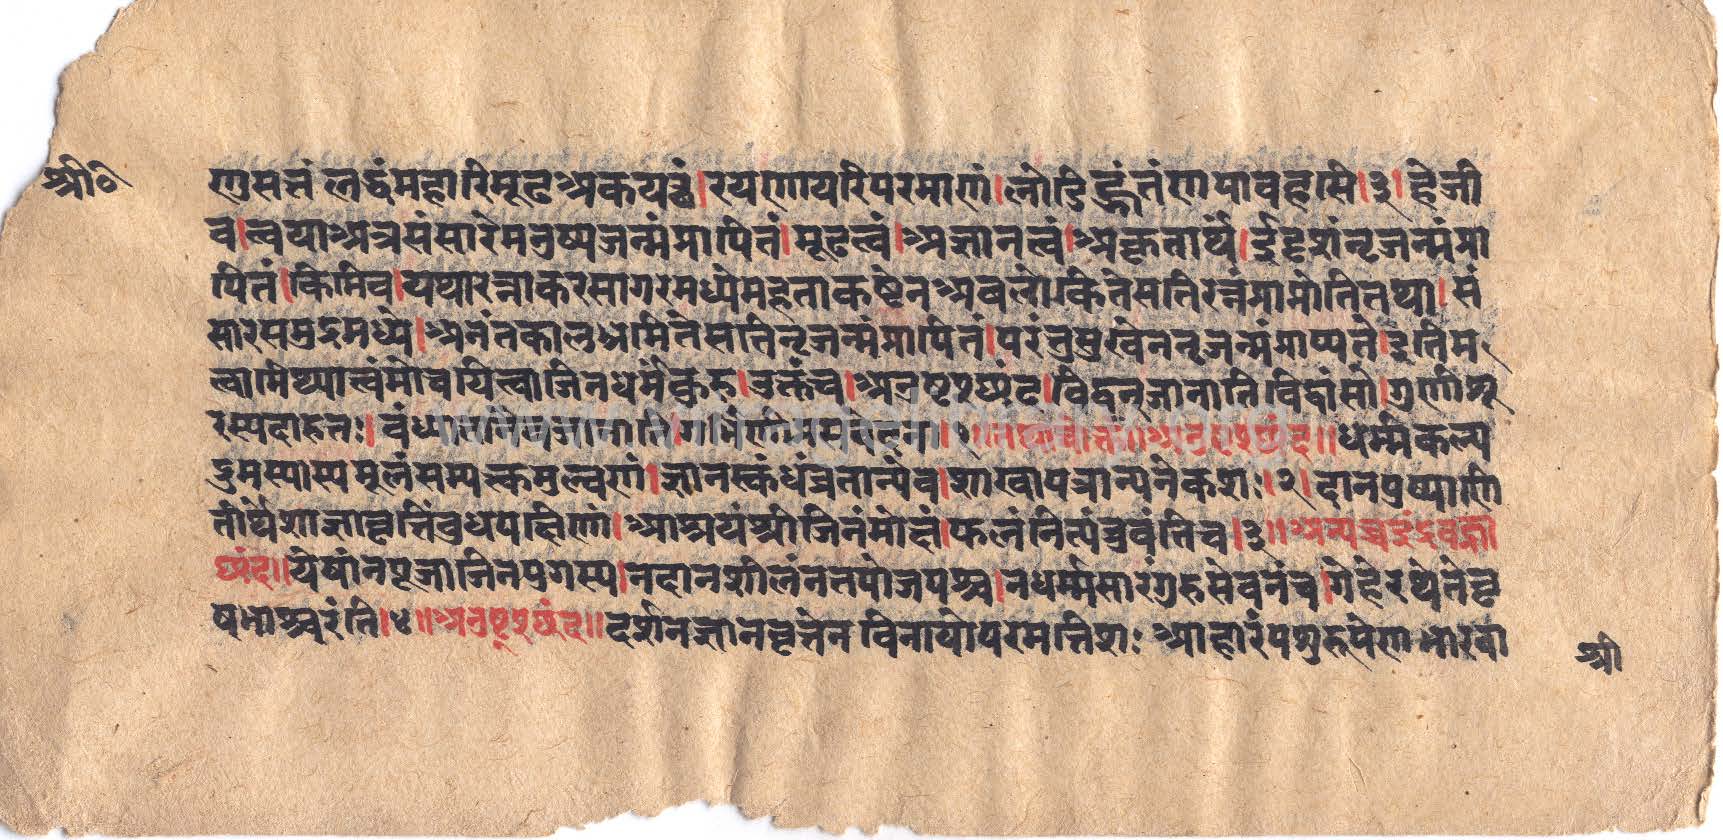 श्री॰
णुसत्तं लद्धंमहारिमूढअकयच्छं।रयणायरिपरमाणं।लोडिह्णंतंणपावहसि।३।हेजी
व।त्वयाअत्रसंसारेमनुष्यजन्मंप्रापितं।मूढत्वं।अज्ञानत्वं।अकृतार्थं।ईदृशंनृजन्मंप्रा
पितं।किमिव।यथारत्नाकरसागरमध्येमहताकष्टेनअवलोकितेसतिरत्नंप्राप्नोतितथा।सं
सारसमुद्रमध्ये।अनंतकालभ्रमितेसतिनृजन्मंप्रापितं।परंतुसुखेननृजन्मंप्राप्यते।इतिम
त्वामिथ्यात्वंमोचयित्वाजिनधर्मंकुरु।उक्तंच।अनुष्टुप्छंद।विद्वान्जानाति।विद्वांसो।गुणीशू
रस्यदारुनः।वंध्यानैवविजानाति।गर्भिणीप्रसववेदना।१।।तथाचोक्तं।।अनुष्टुप्छंद।।धर्म्मकल्प
द्रुमस्यास्यमूलंसम्यक्त्कमुल्वणं।ज्ञानस्कंधंव्रतान्येव।शाखापत्रान्यनेकशः।२।दानपुष्पाणि
तीर्थेशाज्ञावृत्तिंबुधपक्षिणां।आश्रयंश्रीजिनंमोक्षं।फलंनित्यंब्रुवंतिच।३।।अन्यच्चइंद्रवज्रा
छंद।।येषांनपूजाजिनपुंगस्य।नदानशीलंनतपोजपश्च।नधर्म्मसारंगुरुसेवनंच।गेहेरथेतेवृ
षभाश्चरंति।४।।अनुष्टुप्छंद।।दर्शनज्ञानवृत्तेन विनायोपरमत्तिशः आहारंपशुरुपेण भारवा
श्री
www.vmagelibrary.org